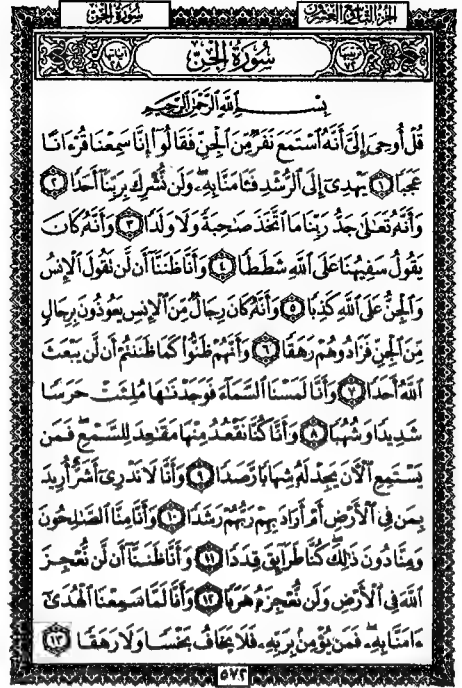 سُورَةُ الجِنِّ
الجزء التاسع والعشرون
ترتيبها ٧٢
سُورَةُ الجِنِّ
آياتها ٢٨
بِسْمِ اللَّهِ الرَّحْمَٰنِ الرَّحِيمِ
قُلْ أُوحِيَ إِلَيَّ أَنَّهُ ٱسْتَمَعَ نَفَرٌ مِّنَ ٱلْجِنِّ فَقَالُوٓا۟ إِنَّا سَمِعْنَا قُرْءَانًا
عَجَبًا ١ يَهْدِىٓ إِلَى ٱلرُّشْدِ فَـَٔامَنَّا بِهِۦ وَلَن نُّشْرِكَ بِرَبِّنَآ أَحَدًا ٢
وَأَنَّهُۥ تَعَٰلَىٰ جَدُّ رَبِّنَا مَا ٱتَّخَذَ صَٰحِبَةً وَلَا وَلَدًا ٣ وَأَنَّهُۥ كَانَ
يَقُولُ سَفِيهُنَا عَلَى ٱللَّهِ شَطَطًا ٤ وَأَنَّا ظَنَنَّآ أَن لَّن تَقُولَ ٱلْإِنسُ
وَٱلْجِنُّ عَلَى ٱللَّهِ كَذِبًا ٥ وَأَنَّهُۥ كَانَ رِجَالٌ مِّنَ ٱلْإِنسِ يَعُوذُونَ بِرِجَالٍ
مِّنَ ٱلْجِنِّ فَزَادُوهُمْ رَهَقًا ٦ وَأَنَّهُمْ ظَنُّوا۟ كَمَا ظَنَنتُمْ أَن لَّن يَبْعَثَ
ٱللَّهُ أَحَدًا ٧ وَأَنَّا لَمَسْنَا ٱلسَّمَآءَ فَوَجَدْنَٰهَا مُلِئَتْ حَرَسًا
شَدِيدًا وَشُهُبًا ٨ وَأَنَّا كُنَّا نَقْعُدُ مِنْهَا مَقَٰعِدَ لِلسَّمْعِ فَمَن
يَسْتَمِعِ ٱلْـَٔانَ يَجِدْ لَهُۥ شِهَابًا رَّصَدًا ٩ وَأَنَّا لَا نَدْرِىٓ أَشَرٌّ أُرِيدَ
بِمَن فِى ٱلْأَرْضِ أَمْ أَرَادَ بِهِمْ رَبُّهُمْ رَشَدًا ١٠ وَأَنَّا مِنَّا ٱلصَّٰلِحُونَ
وَمِنَّا دُونَ ذَٰلِكَ كُنَّا طَرَآئِقَ قِدَدًا ١١ وَأَنَّا ظَنَنَّآ أَن لَّن نُّعْجِزَ
ٱللَّهَ فِى ٱلْأَرْضِ وَلَن نُّعْجِزَهُۥ هَرَبًا ١٢ وَأَنَّا لَمَّا سَمِعْنَا ٱلْهُدَىٰٓ
ءَامَنَّا بِهِۦ فَمَن يُؤْمِنۢ بِرَبِّهِۦ فَلَا يَخَافُ بَخْسًا وَلَا رَهَقًا ١٣
٥٧٢